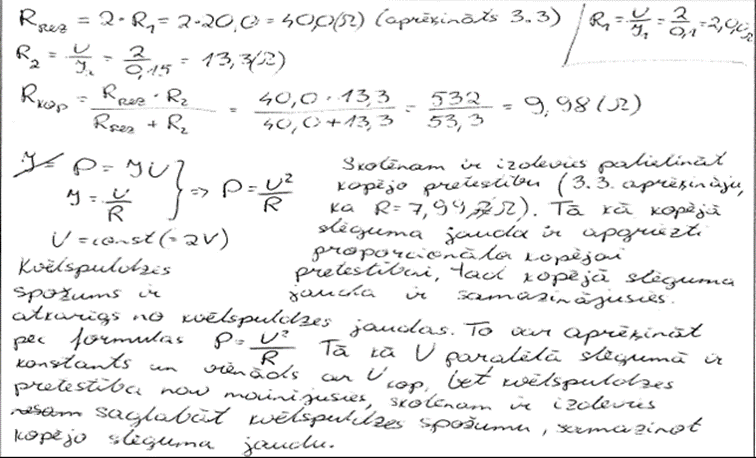 R_rez = 2 · R₁ = 2 · 20,0 = 40,0(Ω) (aprēķināts 3.3) R₁ = U/I₁ = 2/0,1 = 2,00Ω
R₂ = U/I₂ = 2/0,15 = 13,3(Ω)
R_kop = (R_rez · R₂)/(R_rez + R₂) = (40,0 · 13,3)/(40,0 + 13,3) = 532/53,3 = 9,98(Ω)
P = IU
I = U/R } ⇒ P = U²/R
U = const (= 2V)
Skolēnam ir izdevies palielināt
kopējo pretestību (3.3. aprēķināju,
ka R = 7,99 Ω). Tā kā kopējā
slēguma jauda ir apgriezti
proporcionāla kopējai
pretestībai, tad kopējā slēguma
jauda ir samazinājusies.
Kvēlspuldzes
spožums ir
atkarīgs no kvēlspuldzes jaudas. To var aprēķināt
pēc formulas P = U²/R Tā kā U paralēlā slēgumā ir
konstants un vienāds ar U_kop, bet kvēlspuldzes
pretestība nav mainījusies, skolēnam ir izdevies
saglabāt kvēlspuldzes spožumu, samazinot
kopējo slēguma jaudu.